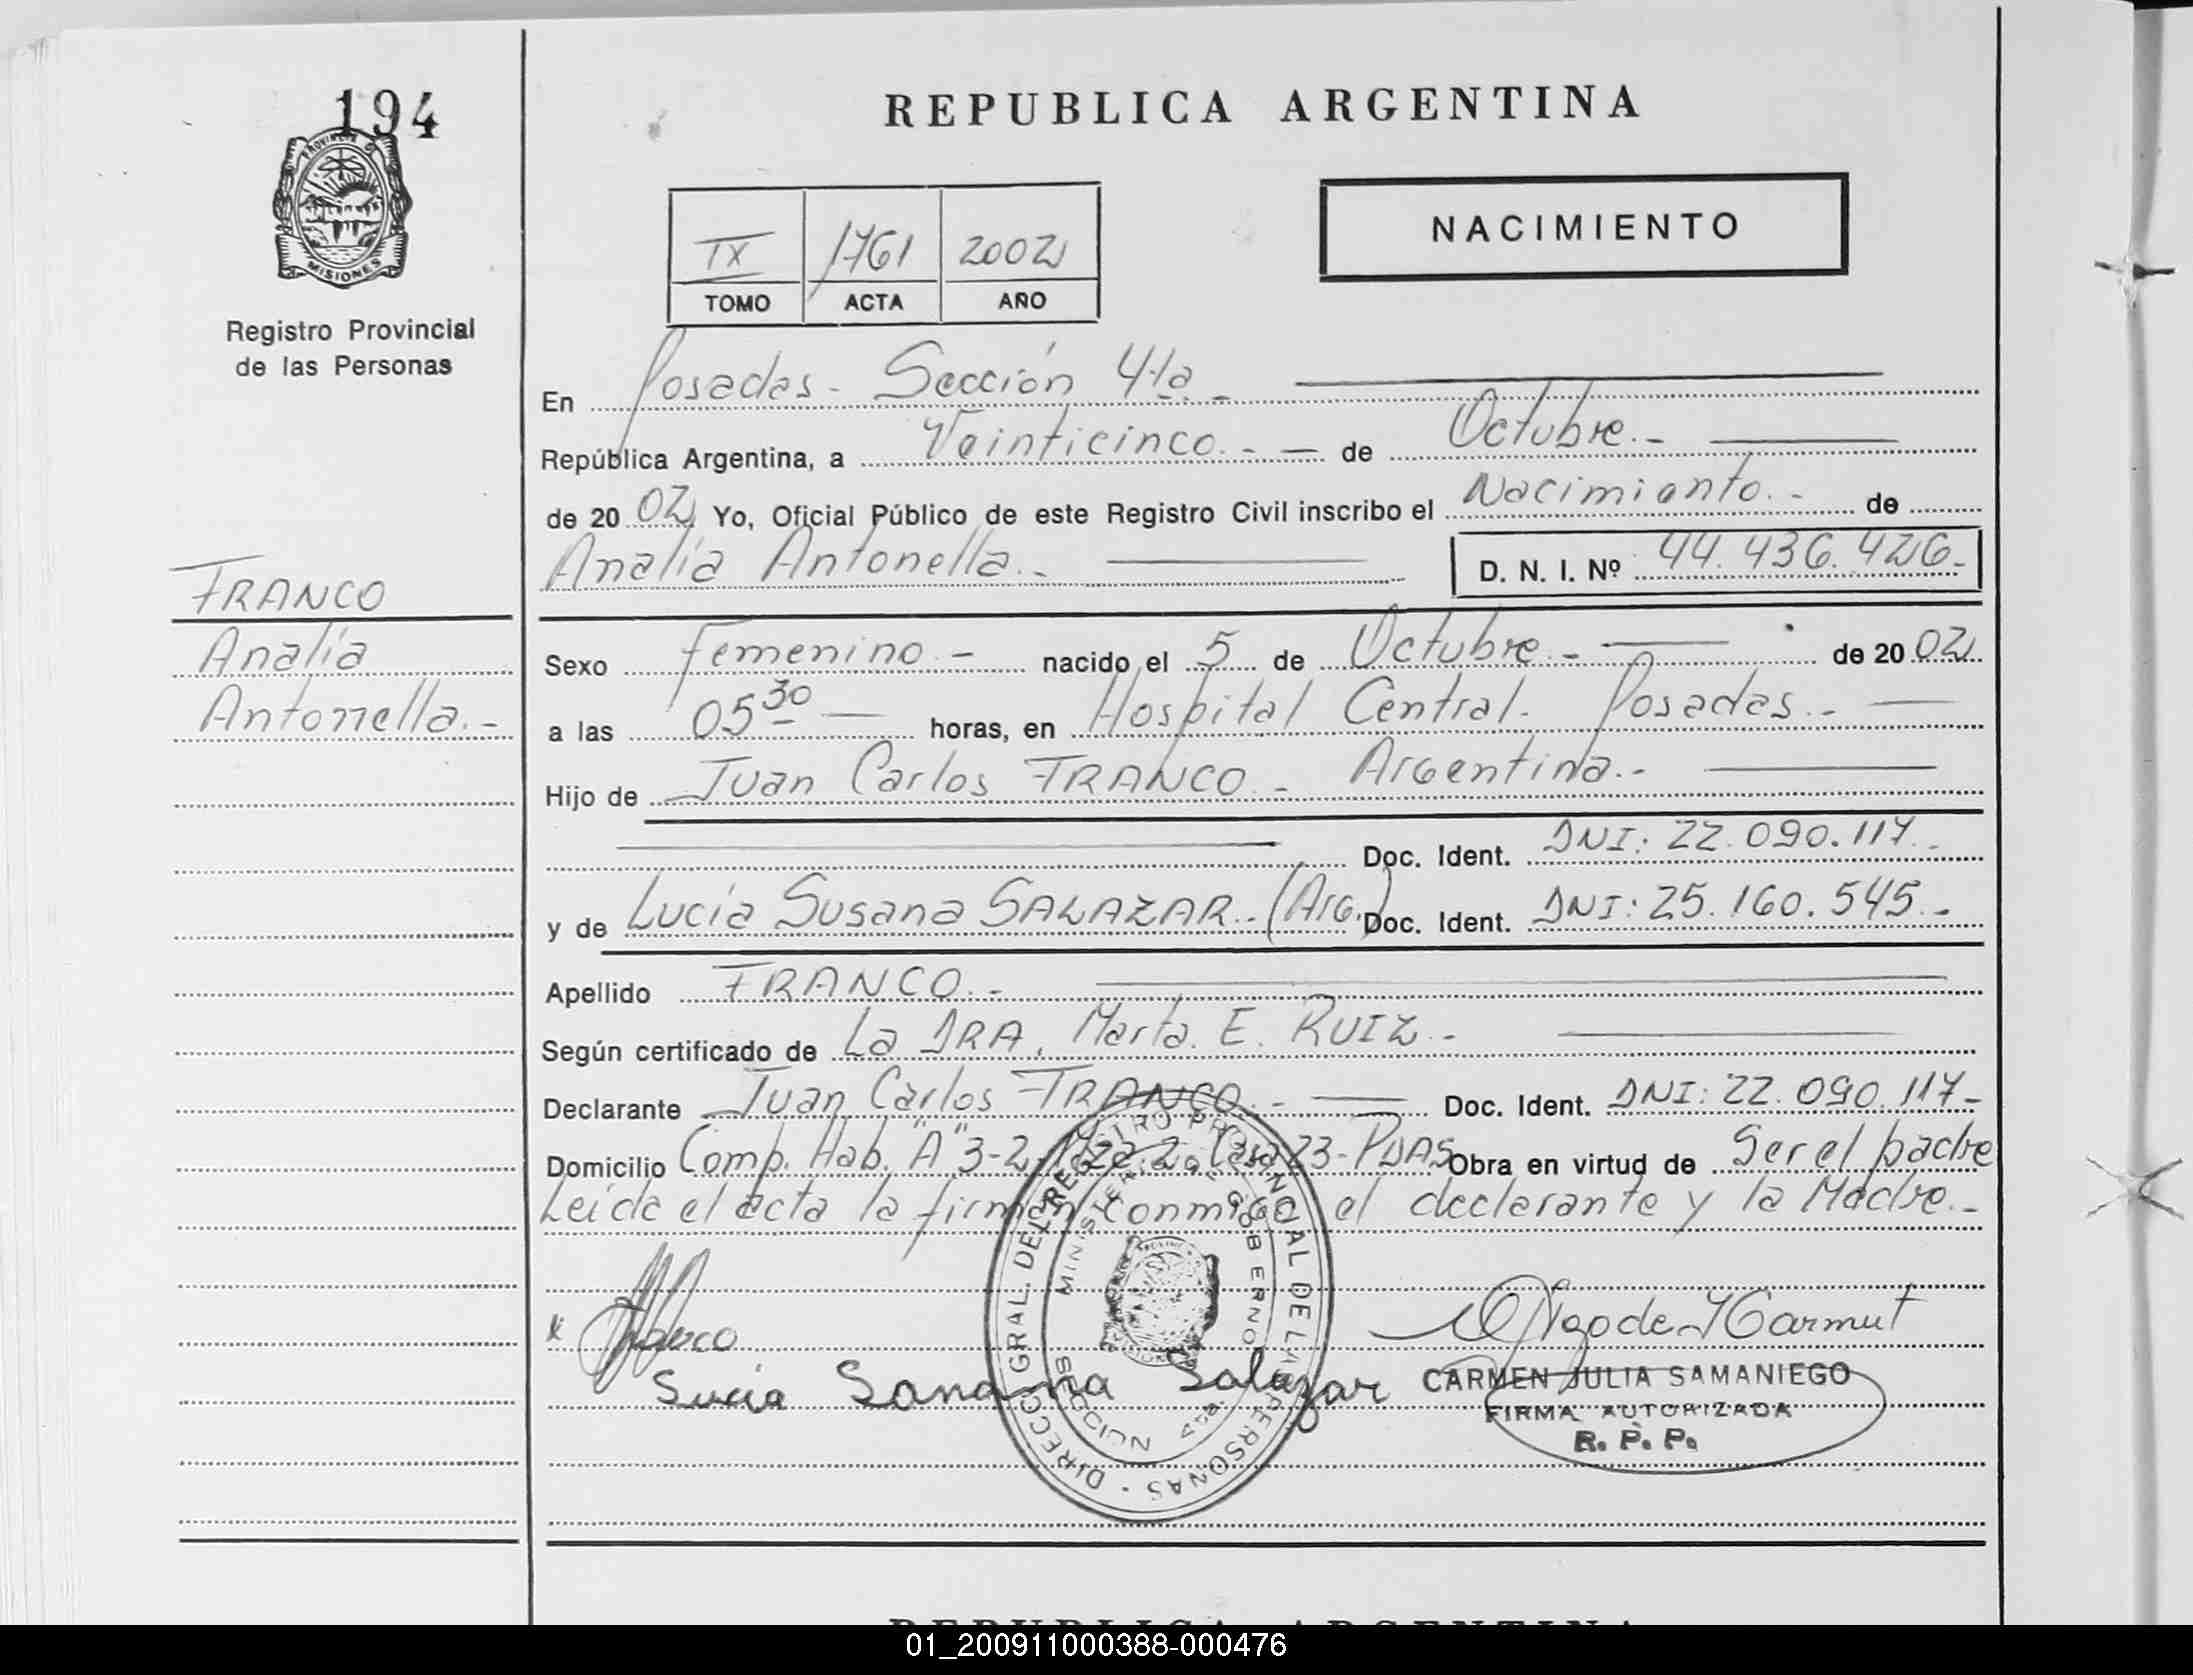 194
PROVINCIA D
MISIONES
Registro Provincial
de las Personas
FRANCO
Analía
Antonella.-
REPUBLICA ARGENTINA
NACIMIENTO
IX 1761 2002
TOMO ACTA AÑO
En Posadas - Sección 4ta -
República Argentina, a Veinticinco.- - de Octubre.-
de 20 02 Yo, Oficial Público de este Registro Civil inscribo el Nacimiento.- de
Analía Antonella.- D. N. I. Nº 44.436.426.-
Sexo Femenino.- nacido el 5 de Octubre.- de 20 02
a las 05 30 horas, en Hospital Central. Posadas.-
Hijo de Juan Carlos FRANCO - Argentina.-
Doc. Ident. DNI: 22.090.117.-
y de Lucía Susana SALAZAR.. (Arg.) Doc. Ident. DNI: 25.160.545.-
Apellido FRANCO.-
Según certificado de La DRA. Marta. E. RUIZ.-
Declarante Juan Carlos FRANCO.- Doc. Ident. DNI: 22.090.117-
Domicilio Comp. Hab. "A" 3-2 Mza 2 Casa 23- PDAS Obra en virtud de Ser el padre
Leída el acta la firman conmigo el declarante y la Madre.-
DIRECC. GRAL. DEL REGISTRO PROVINCIAL DE LAS PERSONAS
GOBIERNO
SECCION 4ta.
Franco
Lucia Salazar
CARMEN JULIA SAMANIEGO
FIRMA AUTORIZADA
R. P. P.
REPUBLICA ARGENTINA
01_200911000388-000476